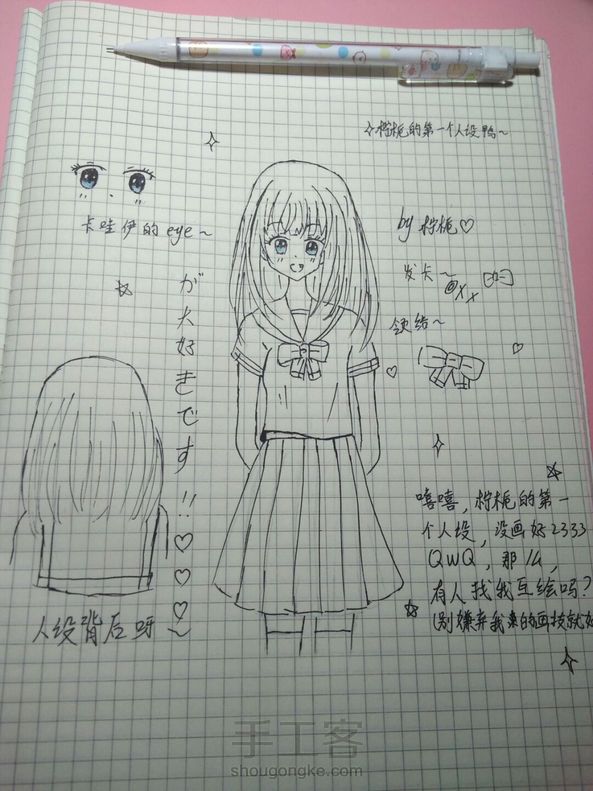 柠栀的第一个人设鸭~
by 柠栀♡
卡哇伊的eye~
发卡~
领结~
が大好きです!!♡♡♡
嘻嘻,柠栀的第一
个人设,没画好2333
QWQ,那么,
有人找我互绘吗?
(别嫌弃我来的画技就好
人设背后呀~
手工客
shougongke.com